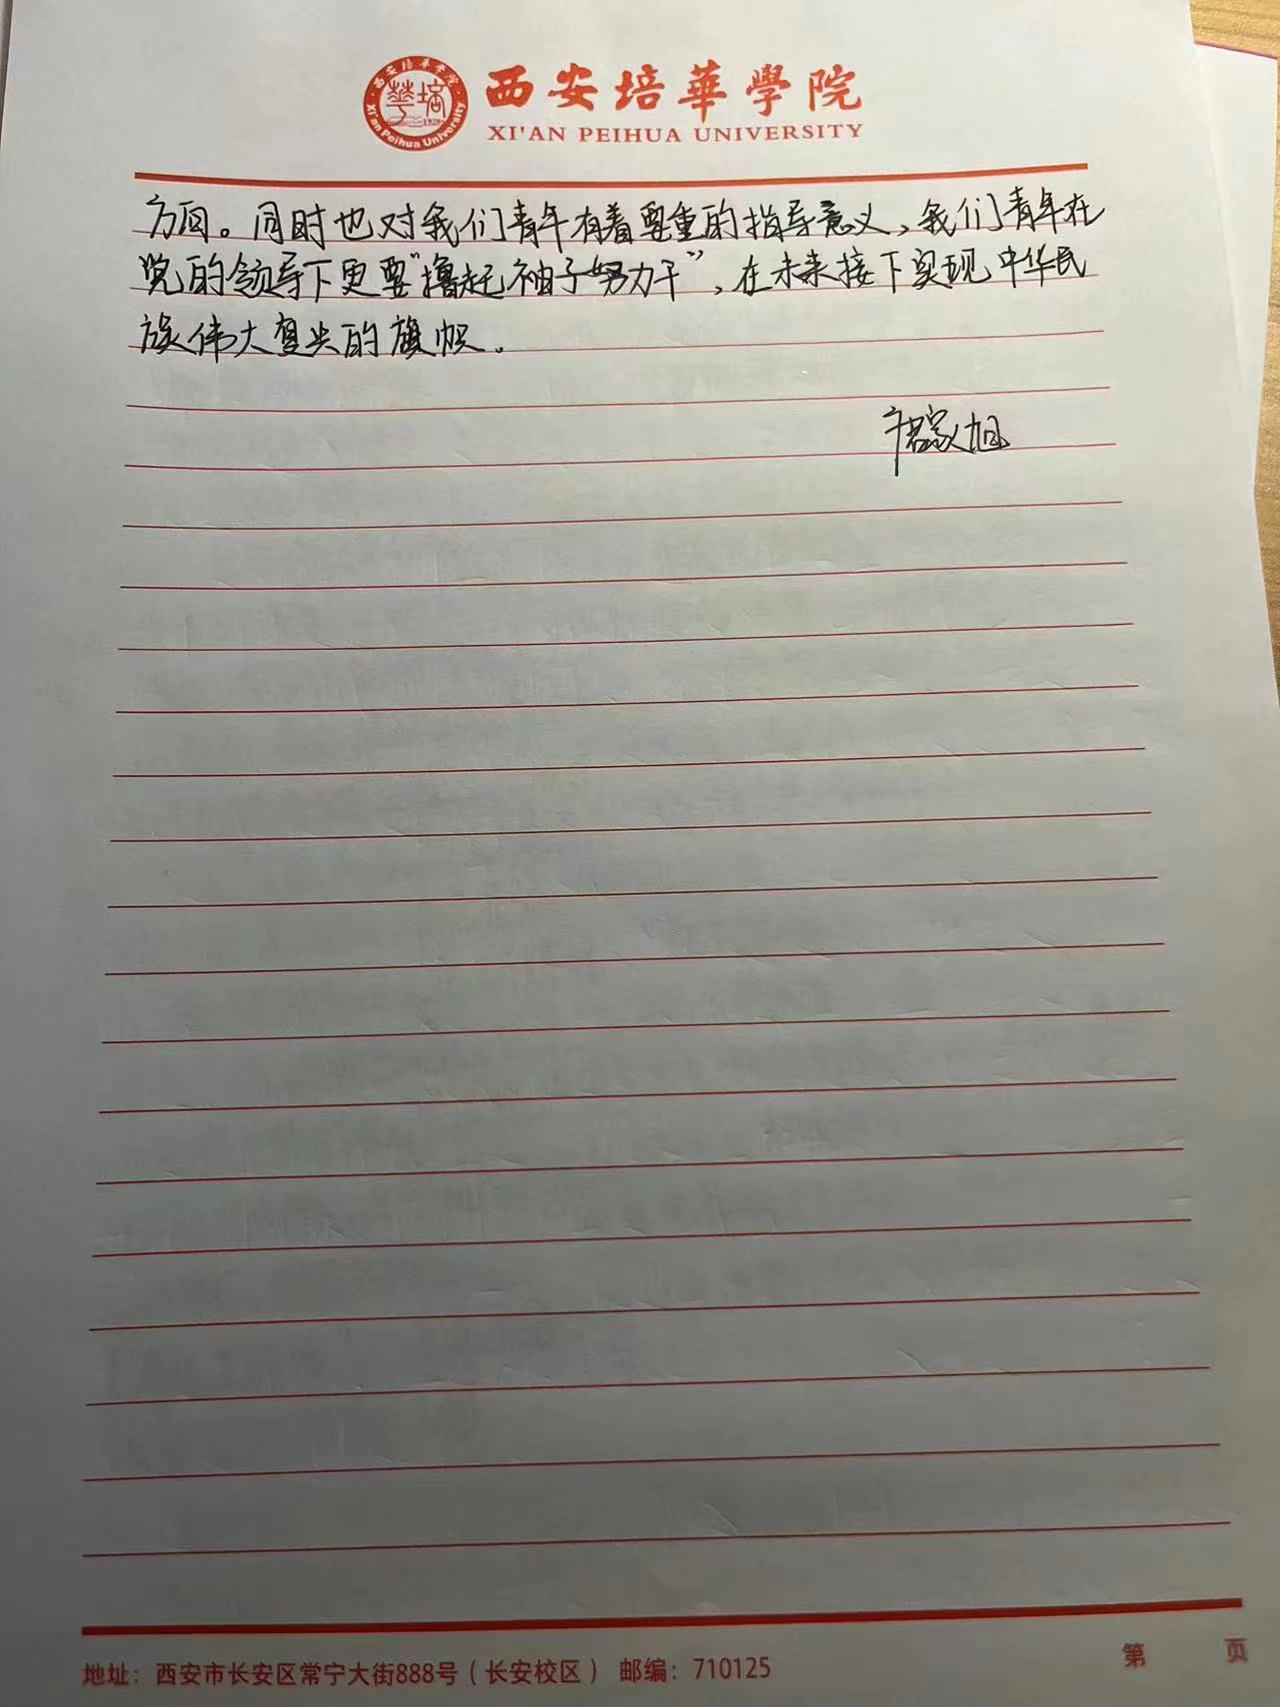 西安培華學院
XI'AN PEIHUA UNIVERSITY
方向。同时也对我们青年有着重要的指导意义,我们青年在
党的领导下更要“撸起袖子努力干”,在未来接下实现中华民
族伟大复兴的旗帜。
地址:西安市长安区常宁大街888号(长安校区) 邮编:710125
第 页